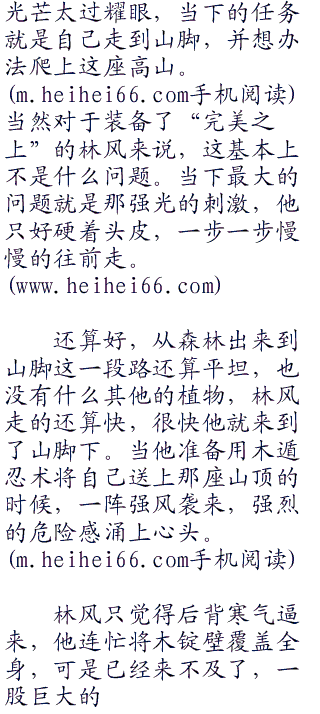 光芒太过耀眼，当下的任务
就是自己走到山脚，并想办
法爬上这座高山。
(m.heihei66.com手机阅读)
当然对于装备了“完美之
上”的林风来说，这基本上
不是什么问题。当下最大的
问题就是那强光的刺激，他
只好硬着头皮，一步一步慢
慢的往前走。
(www.heihei66.com)
还算好，从森林出来到
山脚这一段路还算平坦，也
没有什么其他的植物，林风
走的还算快，很快他就来到
了山脚下。当他准备用木遁
忍术将自己送上那座山顶的
时候，一阵强风袭来，强烈
的危险感涌上心头。
(m.heihei66.com手机阅读)
林风只觉得后背寒气逼
来，他连忙将木锭壁覆盖全
身，可是已经来不及了，一
股巨大的